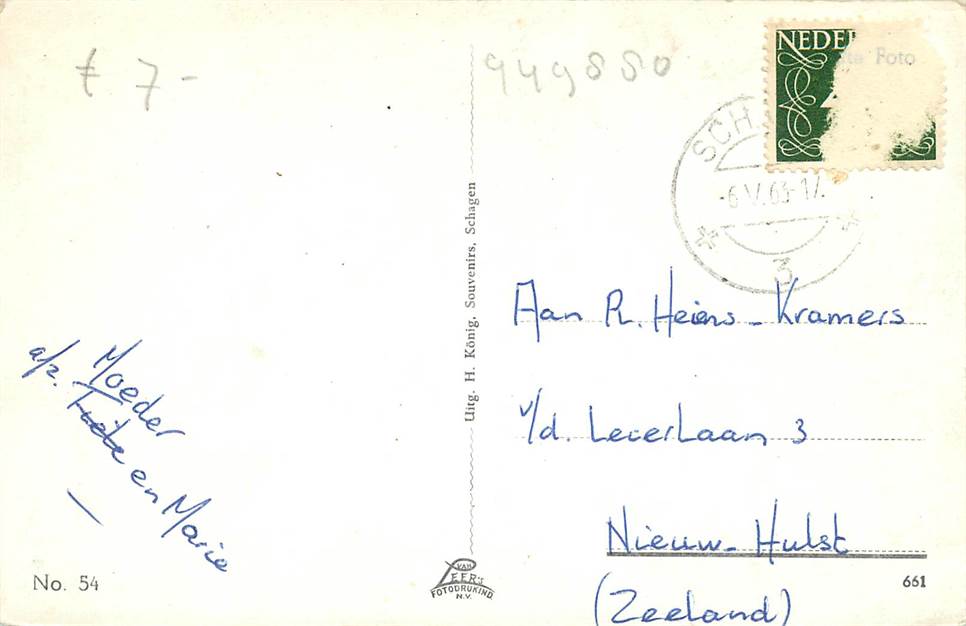 7-
949880
NEDER
te Foto
SCH
-6.V.63-17.
3
Uitg. H. König, Souvenirs, Schagen
Aan R. Heiens-Kramers
v/d. Lecerlaan 3
Nieuw-Hulst
(Zeeland)
Moeder
a/z. en Marie
No. 54
VAN
LEER'S
FOTODRUKIND.
N.V.
661